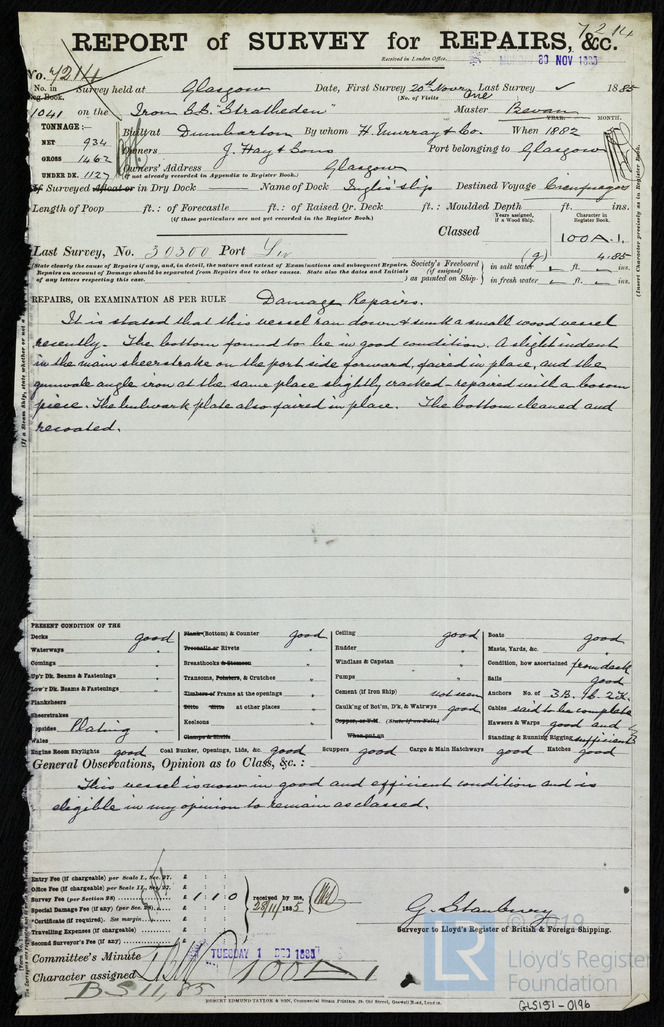 7214
REPORT of SURVEY for REPAIRS, &c.
Received in London Office, MONDAY 30 NOV 1885
No. 7214
No. in Reg. Book. Survey held at Glasgow Date, First Survey 20th Novr Last Survey 1885
(No. of Visits One)
1041 on the Iron S.S. "Stratheden" Master Bevan
TONNAGE:— YEAR. MONTH.
NET 934 Built at Dumbarton By whom H. Murray & Co. When 1882
GROSS 1462 Owners J. Hay & Sons Port belonging to Glasgow
UNDER DK. 1127 Owners' Address Glasgow
(if not already recorded in Appendix to Register Book.)
If Surveyed Afloat or in Dry Dock Name of Dock Inglis' slip Destined Voyage Cienfuegos
Length of Poop ft.: of Forecastle ft.: of Raised Qr. Deck ft.: Moulded Depth ft. ins.
(if these particulars are not yet recorded in the Register Book.)
Years assigned, if a Wood Ship. Character in Register Book.
Classed 100A.1.
Last Survey, No. 30300 Port Liv 4.85
State clearly the cause of Repairs if any, and, in detail, the nature and extent of Examinations and subsequent Repairs. Repairs on account of Damage should be separated from Repairs due to other causes. State also the dates and Initials of any letters respecting this case.
Society's Freeboard (if assigned) as painted on Ship. in salt water ft. ins.
in fresh water ft. ins.
(Insert Character precisely as in Register Book.)
REPAIRS, OR EXAMINATION AS PER RULE Damage Repairs.
It is stated that this vessel ran down & sunk a small wood vessel
recently. The bottom found to be in good condition. A slight indent
in the main sheerstrake on the port side forward, faired in place, and the
gunwale angle iron at the same place slightly cracked - repaired with a bosom
piece. The bulwark plate also faired in place. The bottom cleaned and
recoated.
PRESENT CONDITION OF THE
Decks good
Waterways "
Comings "
Up'r Dk. Beams & Fastenings "
Low'r Dk. Beams & Fastenings "
Planksheers
Sheerstrakes
Topsides Plating "
Wales
Plank (Bottom) & Counter good
Treenails or Rivets "
Breasthooks & Stemson "
Transoms, Pointers, & Crutches "
Timbers or Frame at the openings "
Ditto Ditto at other places "
Keelsons "
Clamps & Shelfs
Ceiling good
Rudder "
Windlass & Capstan "
Pumps "
Cement (if Iron Ship) not seen
Caulking of Bot'm, D'k, & Watrwys good
Copper, or Y.M. (State if on Felt.)
When put on
Boats good
Masts, Yards, &c. "
Condition, how ascertained from deck
Sails good
Anchors No. of 3B. 1S. 2K.
Cables said to be complete
Hawsers & Warps good and
Standing & Running Rigging sufficient
Engine Room Skylights good Coal Bunker, Openings, Lids, &c. good Scuppers good Cargo & Main Hatchways good Hatches good
General Observations, Opinion as to Class, &c.:
This vessel is now in good and efficient condition and is
eligible in my opinion to remain as classed.
Entry Fee (if chargeable) per Scale I., Sec. 27. £ : :
Office Fee (if chargeable) per Scale II., Sec. 27. £ : :
Survey Fee (per Section 28) £ 1 : 1 : 0
Special Damage Fee (if any) (per Sec. 28) £ : :
*Certificate (if required). See margin. £ : :
Travelling Expenses (if chargeable) £ : :
Second Surveyor's Fee (if any) £ : :
received by me, 28/11/1885
G. Stanbury
Surveyor to Lloyd's Register of British & Foreign Shipping.
Committee's Minute TUESDAY 1 DEC 1885
Character assigned 100A1
BS 11,85
ROBERT EDMUND TAYLOR & SON, Commercial Steam Printers, 19, Old Street, Goswell Road, London.
© 2019
LR Lloyd's Register
Foundation
GLS151-0196